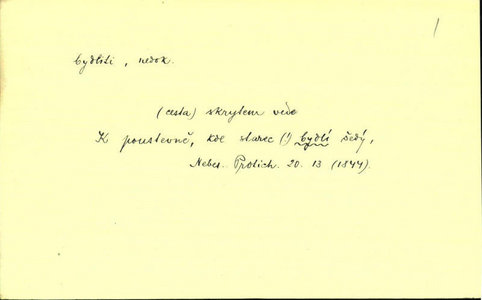 1
bydlíti, nedok.
(cesta) skrytem vede
K poustevně, kde starec (!) bydlí šedý,
Nebes. Protich. 20. 13 (1844).